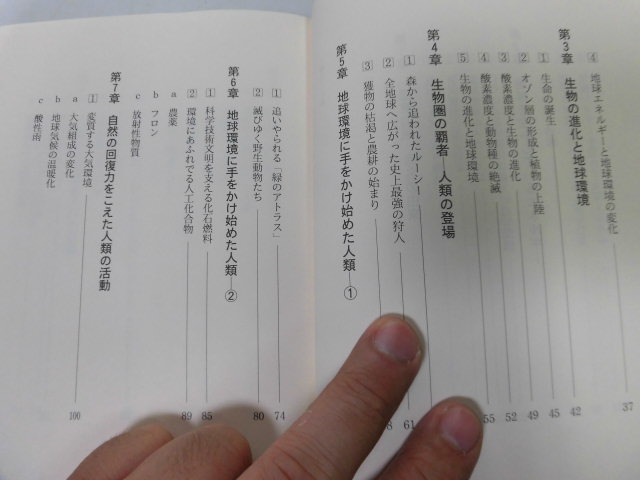 ④ 地球エネルギーと地球環境の変化 37
第3章 生物の進化と地球環境
① 生命の誕生 42
② オゾン層の形成と植物の上陸 45
③ 酸素濃度と生物の進化 49
④ 酸素濃度と動物種の絶滅 52
⑤ 生物の進化と地球環境 55
第4章 生物圏の覇者―人類の登場
① 森から追われたルーシー
② 全地球へ広がった史上最強の狩人 61
③ 獲物の枯渇と農耕の始まり 8
第5章 地球環境に手をかけ始めた人類―①
① 追いやられる「緑のアトラス」 74
② 滅びゆく野生動物たち 80
第6章 地球環境に手をかけ始めた人類―②
① 科学技術文明を支える化石燃料 85
② 環境にあふれでる人工化合物 89
a 農薬
b フロン
c 放射性物質
第7章 自然の回復力をこえた人類の活動
① 変質する大気環境 100
a 大気組成の変化
b 地球気候の温暖化
c 酸性雨